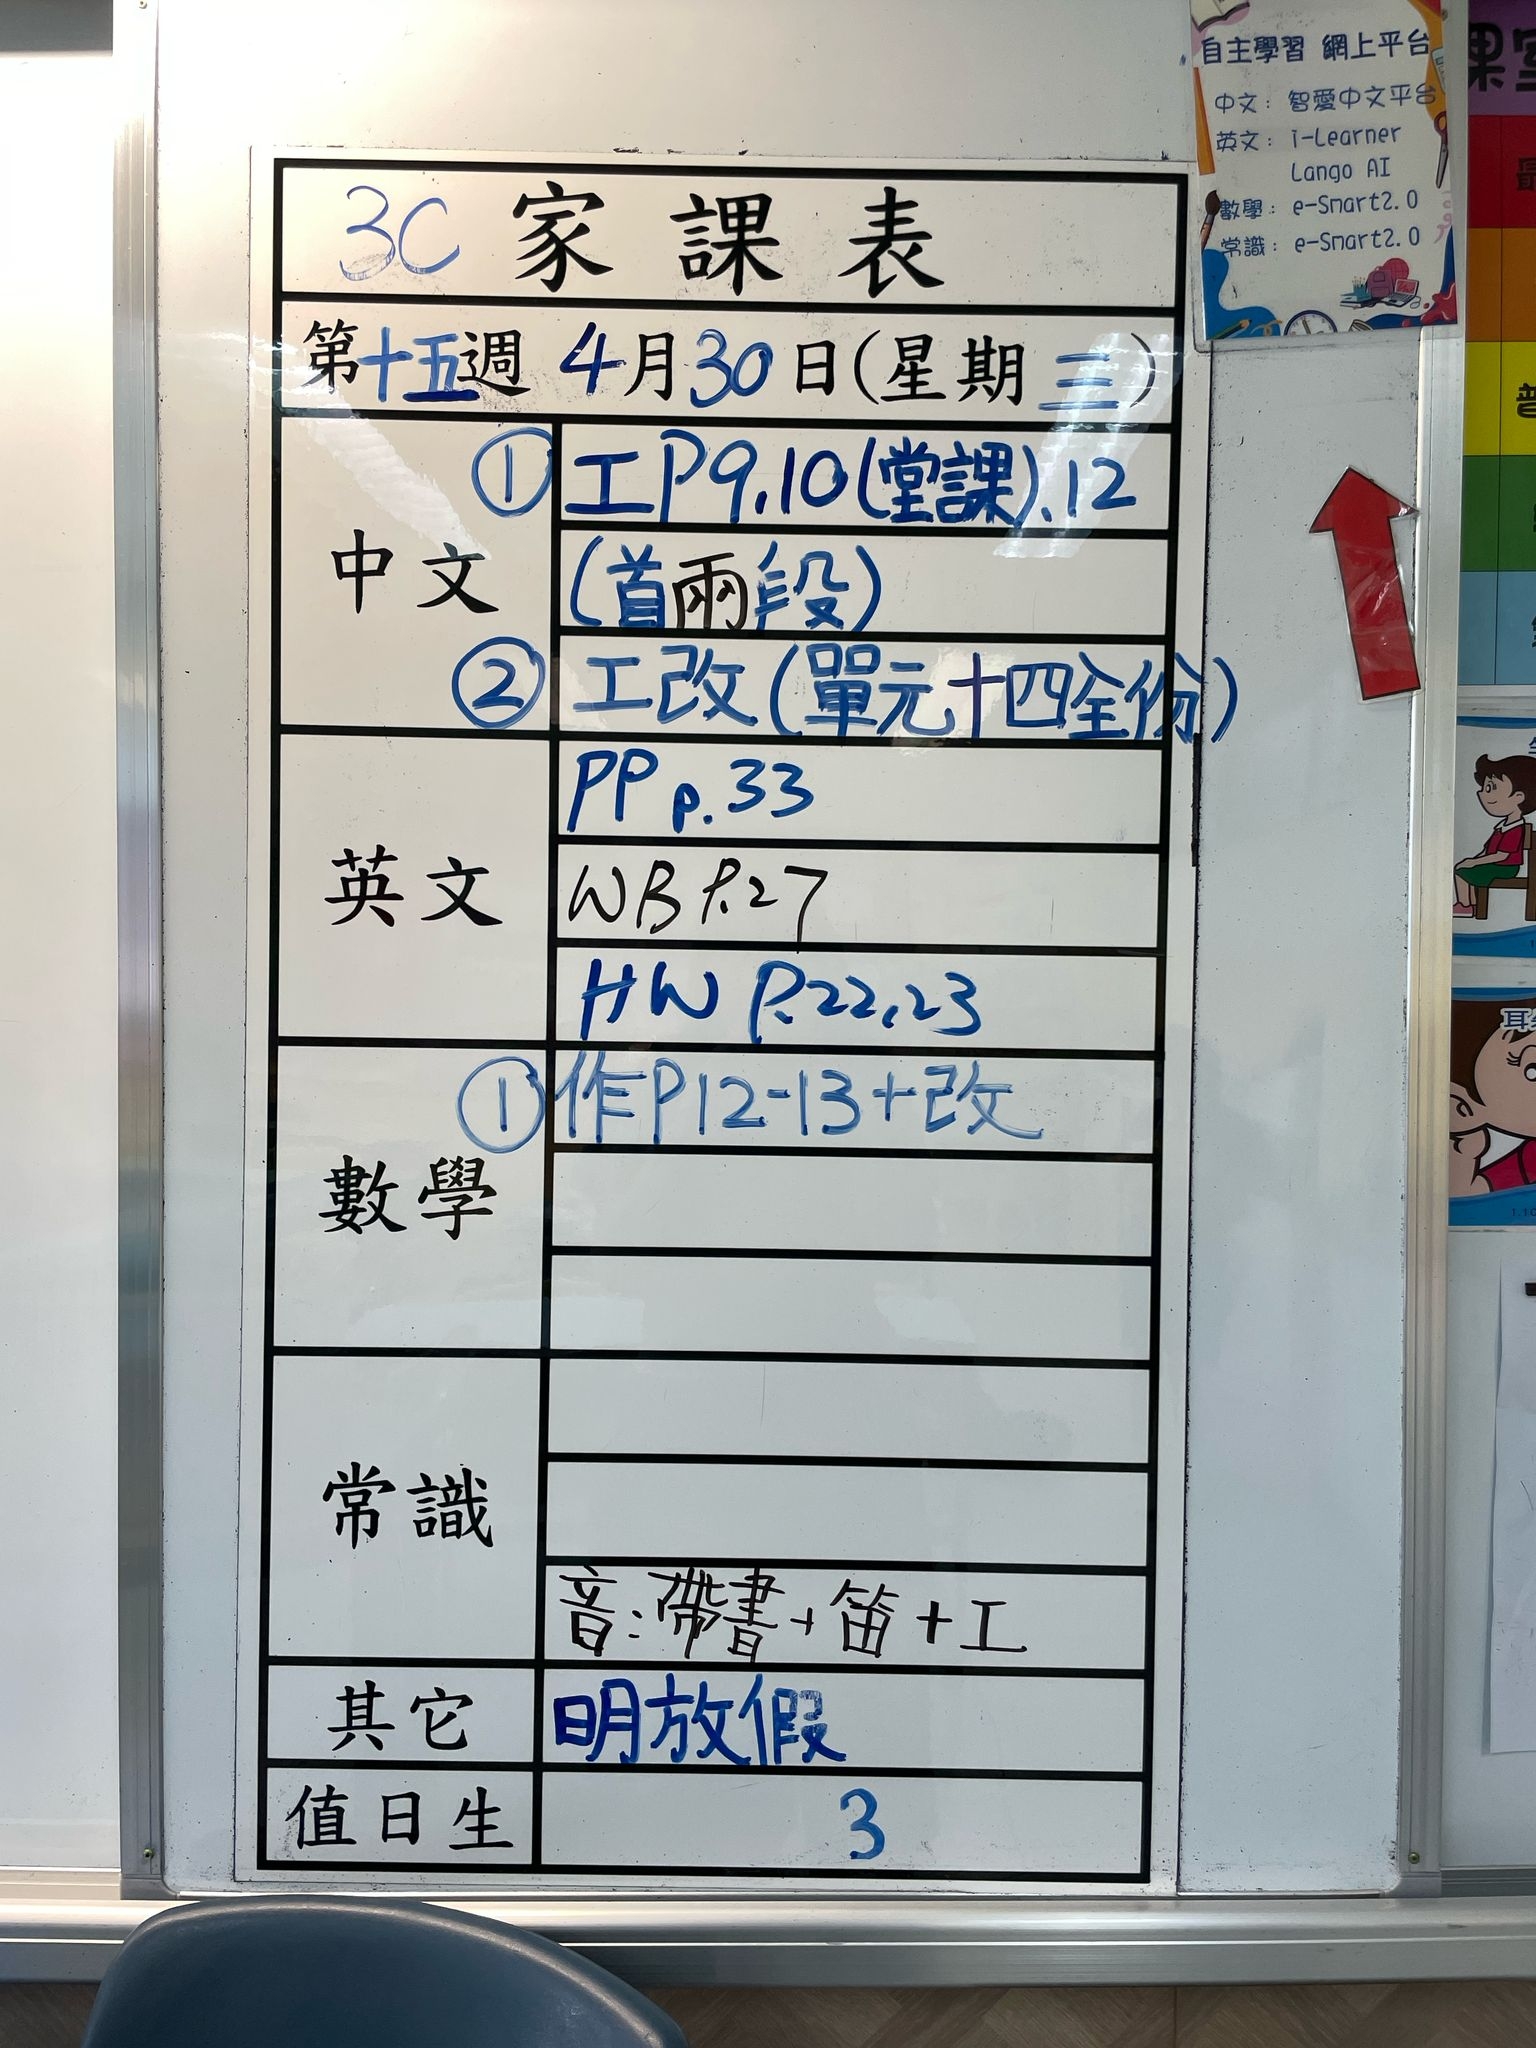 3C 家課表
第十五週 4月30日(星期三)
中文
① 工P9,10(堂課)、12
(首兩段)
② 工改(單元十四全份)
英文
PP p.33
WB P.27
HW P.22,23
數學
① 作P12-13+改
常識
音:帶書+笛+工
其它
明放假
值日生
3
自主學習 網上平台
中文: 智愛中文平台
英文: i-Learner
Lango AI
數學: e-Smart2.0
常識: e-Smart2.0